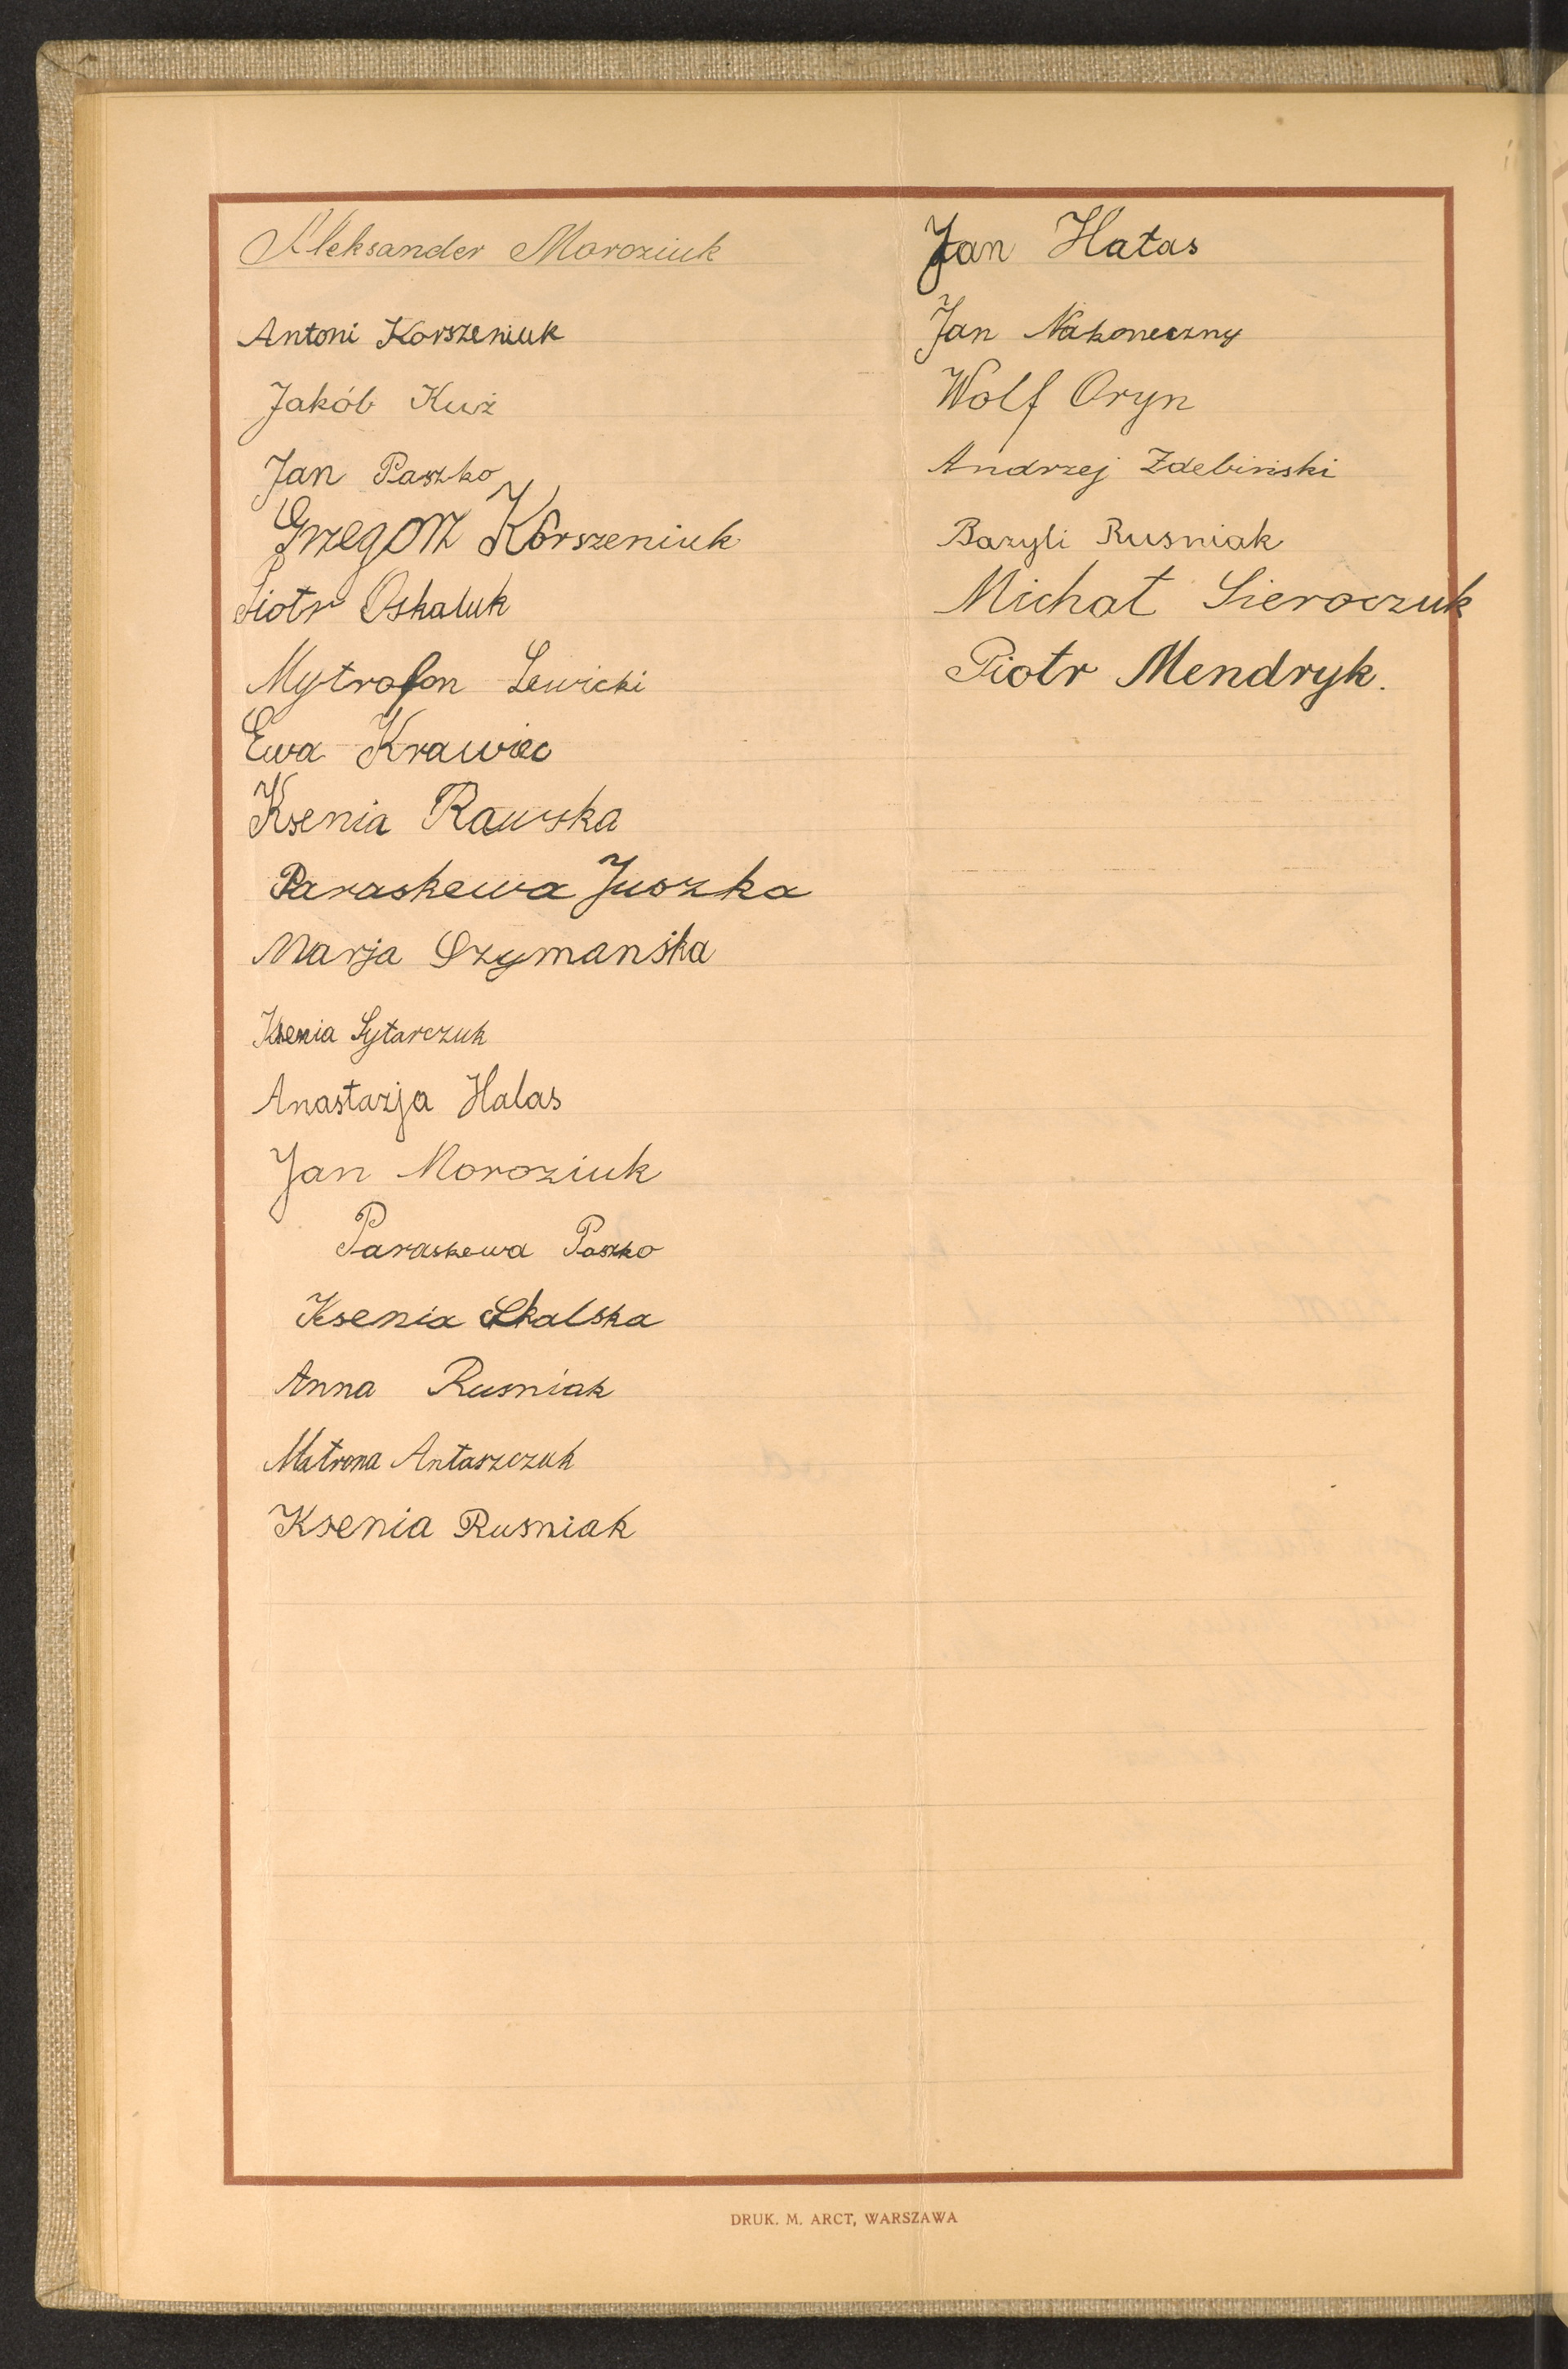 Aleksander Moroziuk
Antoni Korszeniuk
Jakób Kuź
Jan Paszko
Grzegorz Korszeniuk
Piotr Oskaluk
Mytrofon Lewicki
Ewa Krawiec
Ksenia Rawska
Paraskewa Juszka
Marja Szymańska
Ksenia Sytarczuk
Anastazja Halas
Jan Moroziuk
Paraskewa Paszko
Ksenia Skalska
Anna Rusniak
Matrona Antaszczuk
Ksenia Rusniak
Jan Hałas
Jan Nakoneczny
Wolf Oryn
Andrzej Zdebiński
Bazyli Rusniak
Michał Sieroczuk
Piotr Mendryk.
DRUK. M. ARCT, WARSZAWA